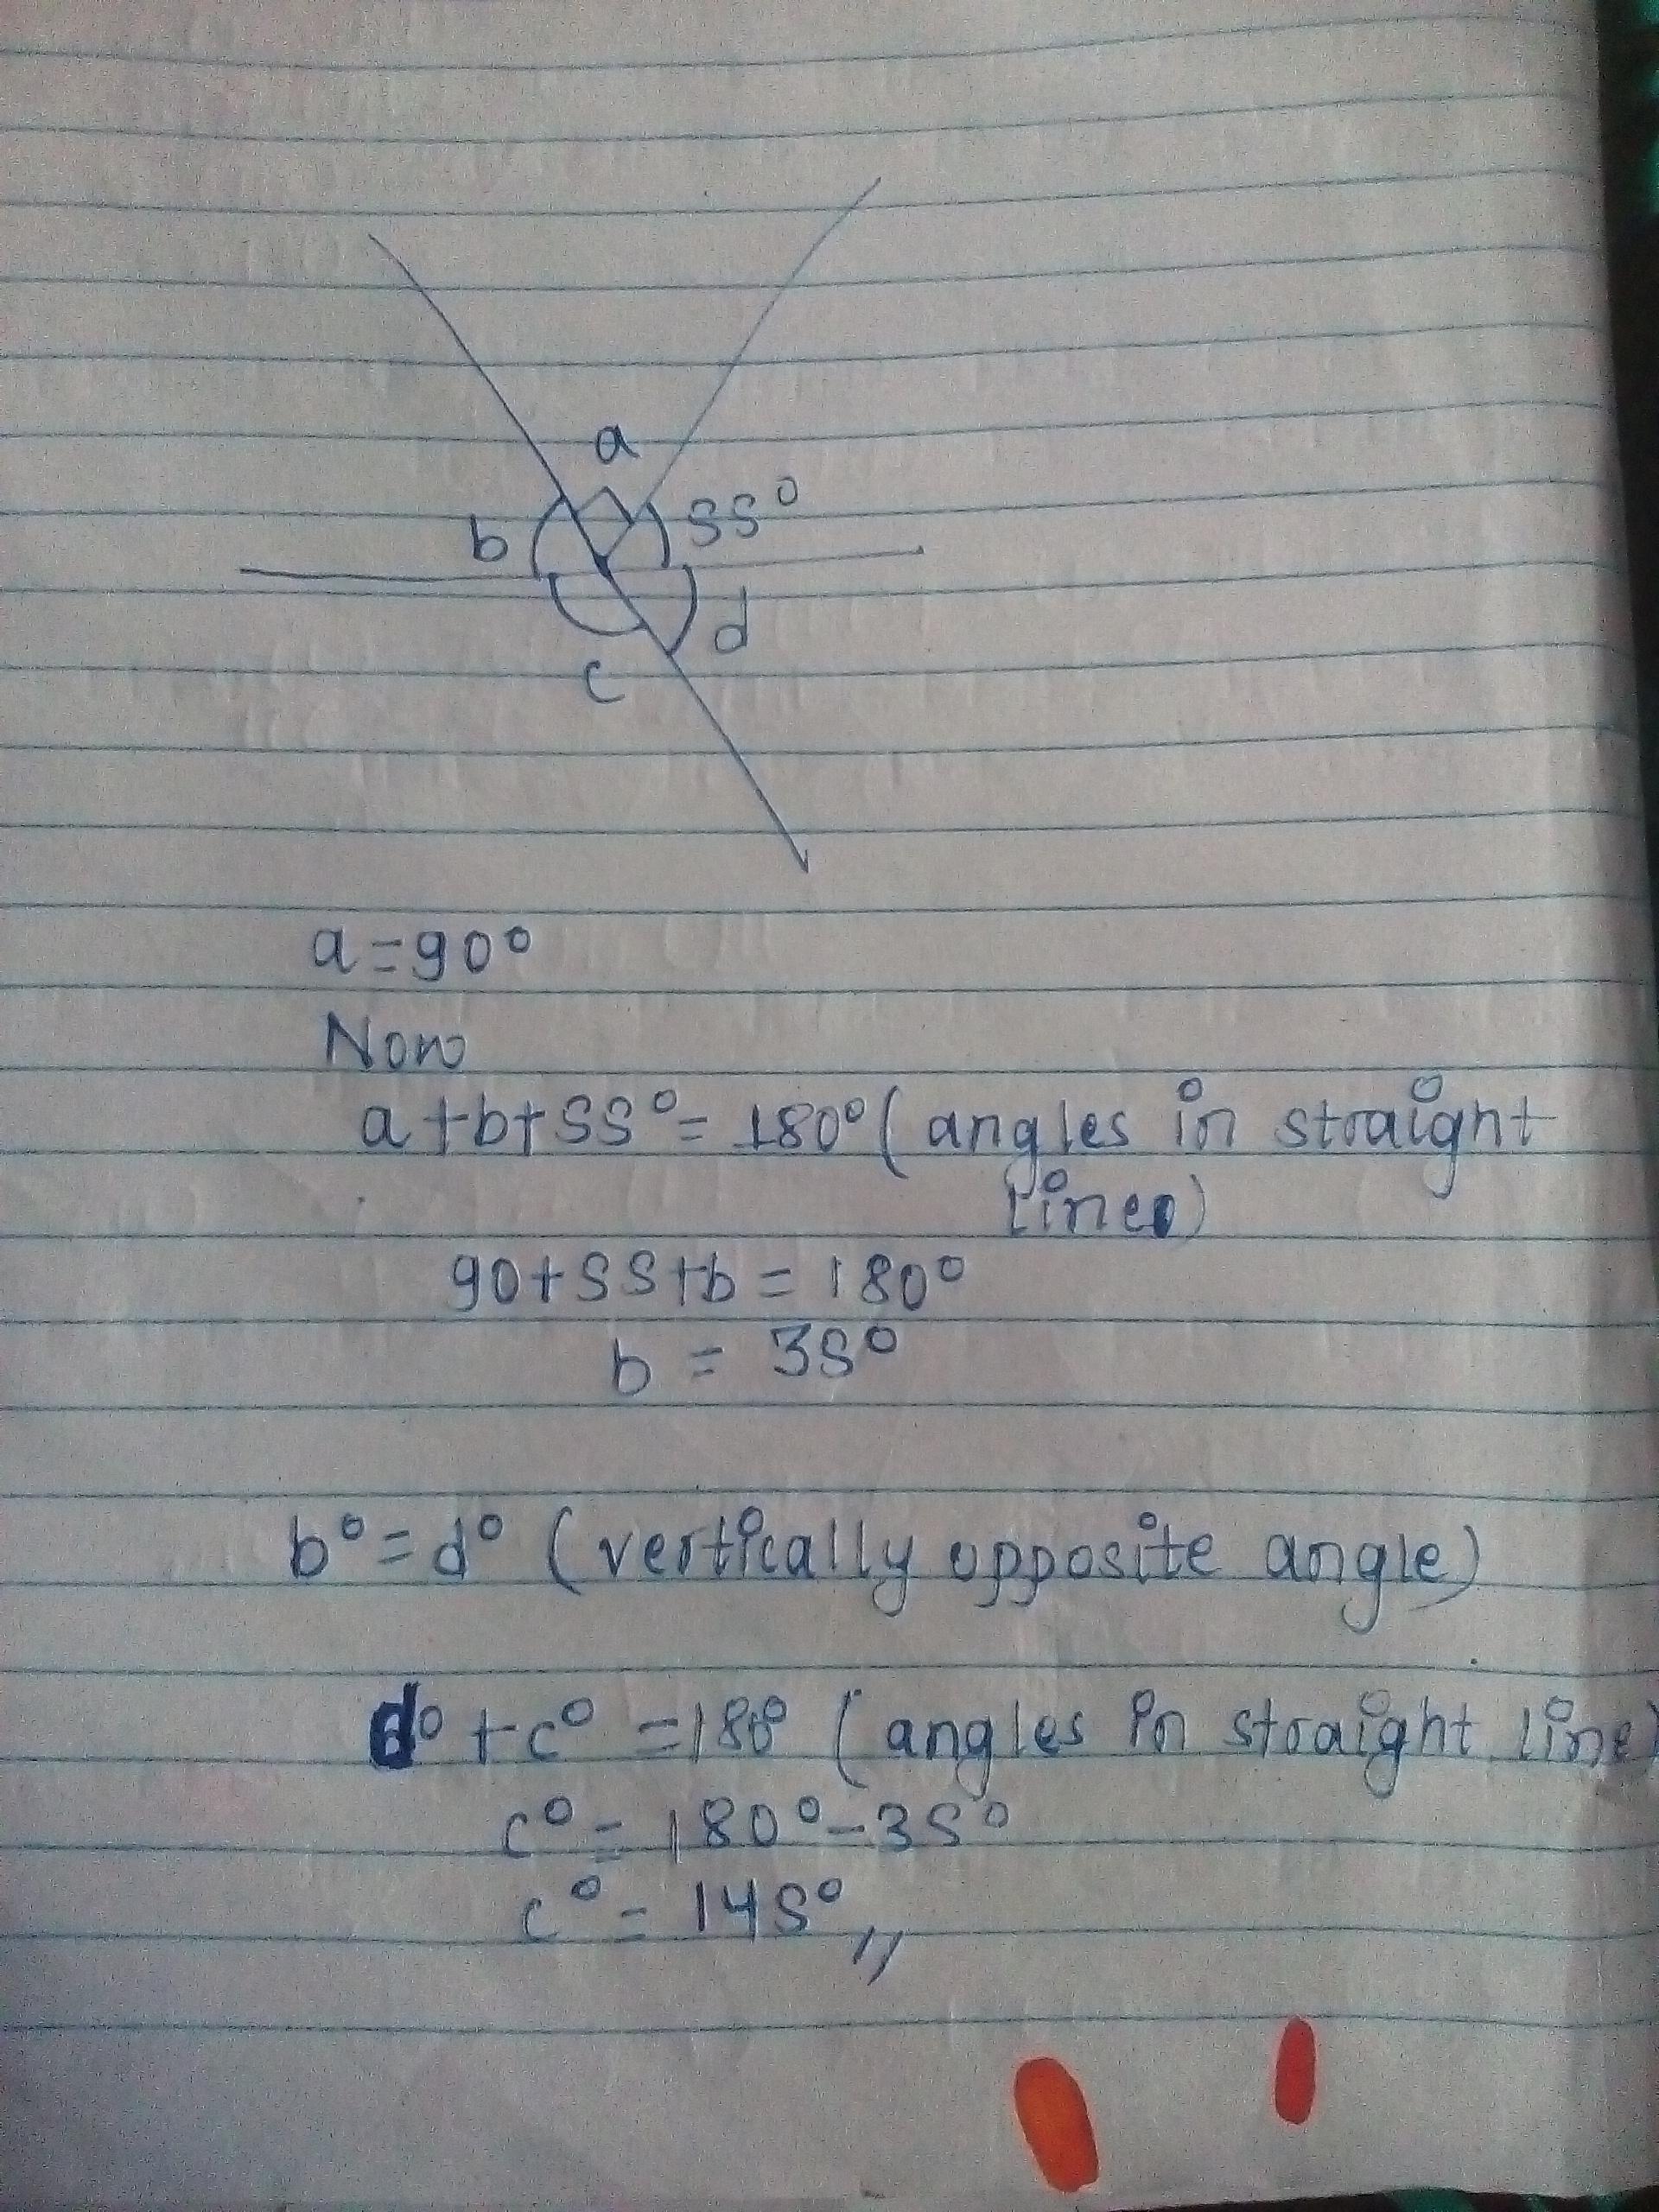 a
b
55°
d
c
a=90°
Now
a+b+55°= 180° ( angles in straight
line)
90+55+b = 180°
b = 35°
b°=d° (vertically opposite angle)
d° + c° =180° ( angles in straight line)
c° = 180°-35°
c° = 145°,,